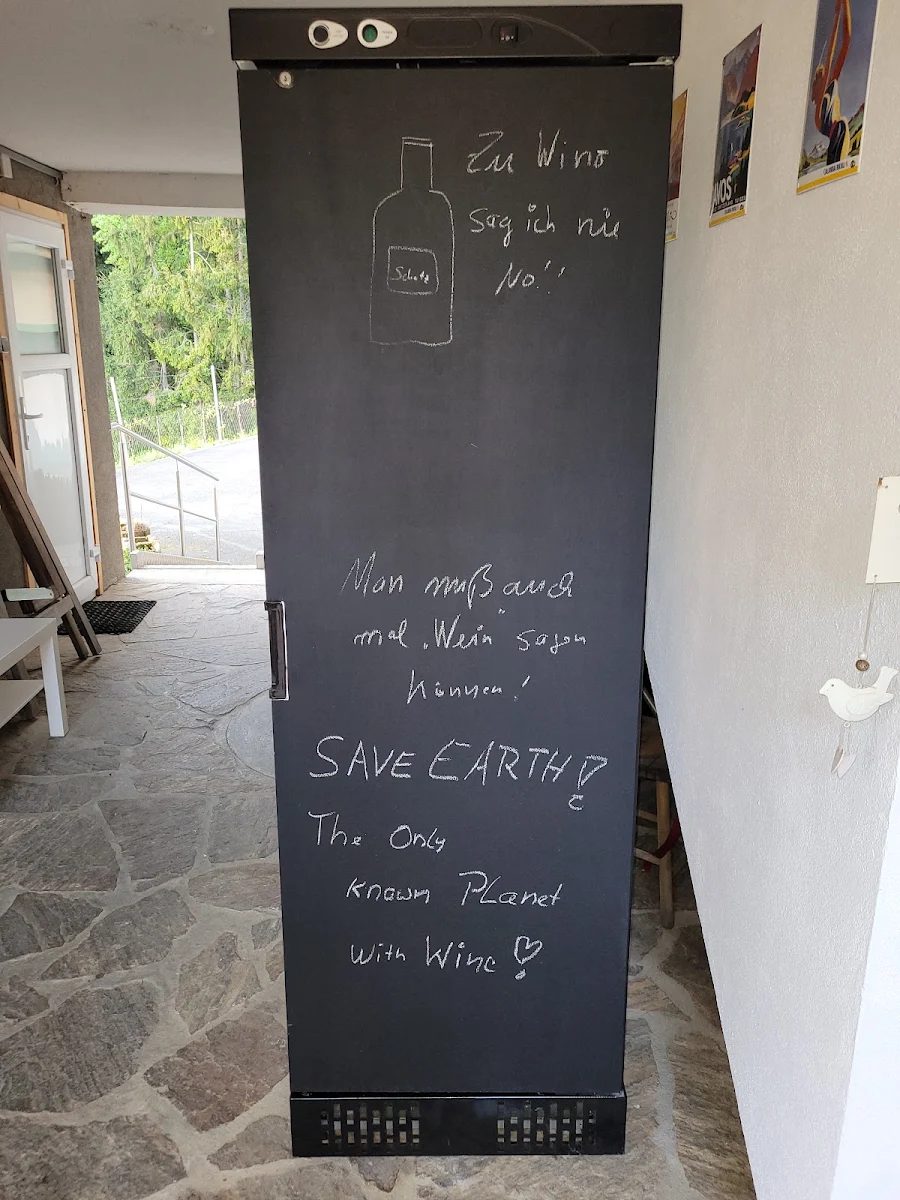 Zu Wino
sag ich nie
No!!
Man muß auch
mal „Wein“ sagen
können!
SAVE EARTH!
The Only
known PLanet
With Wine!